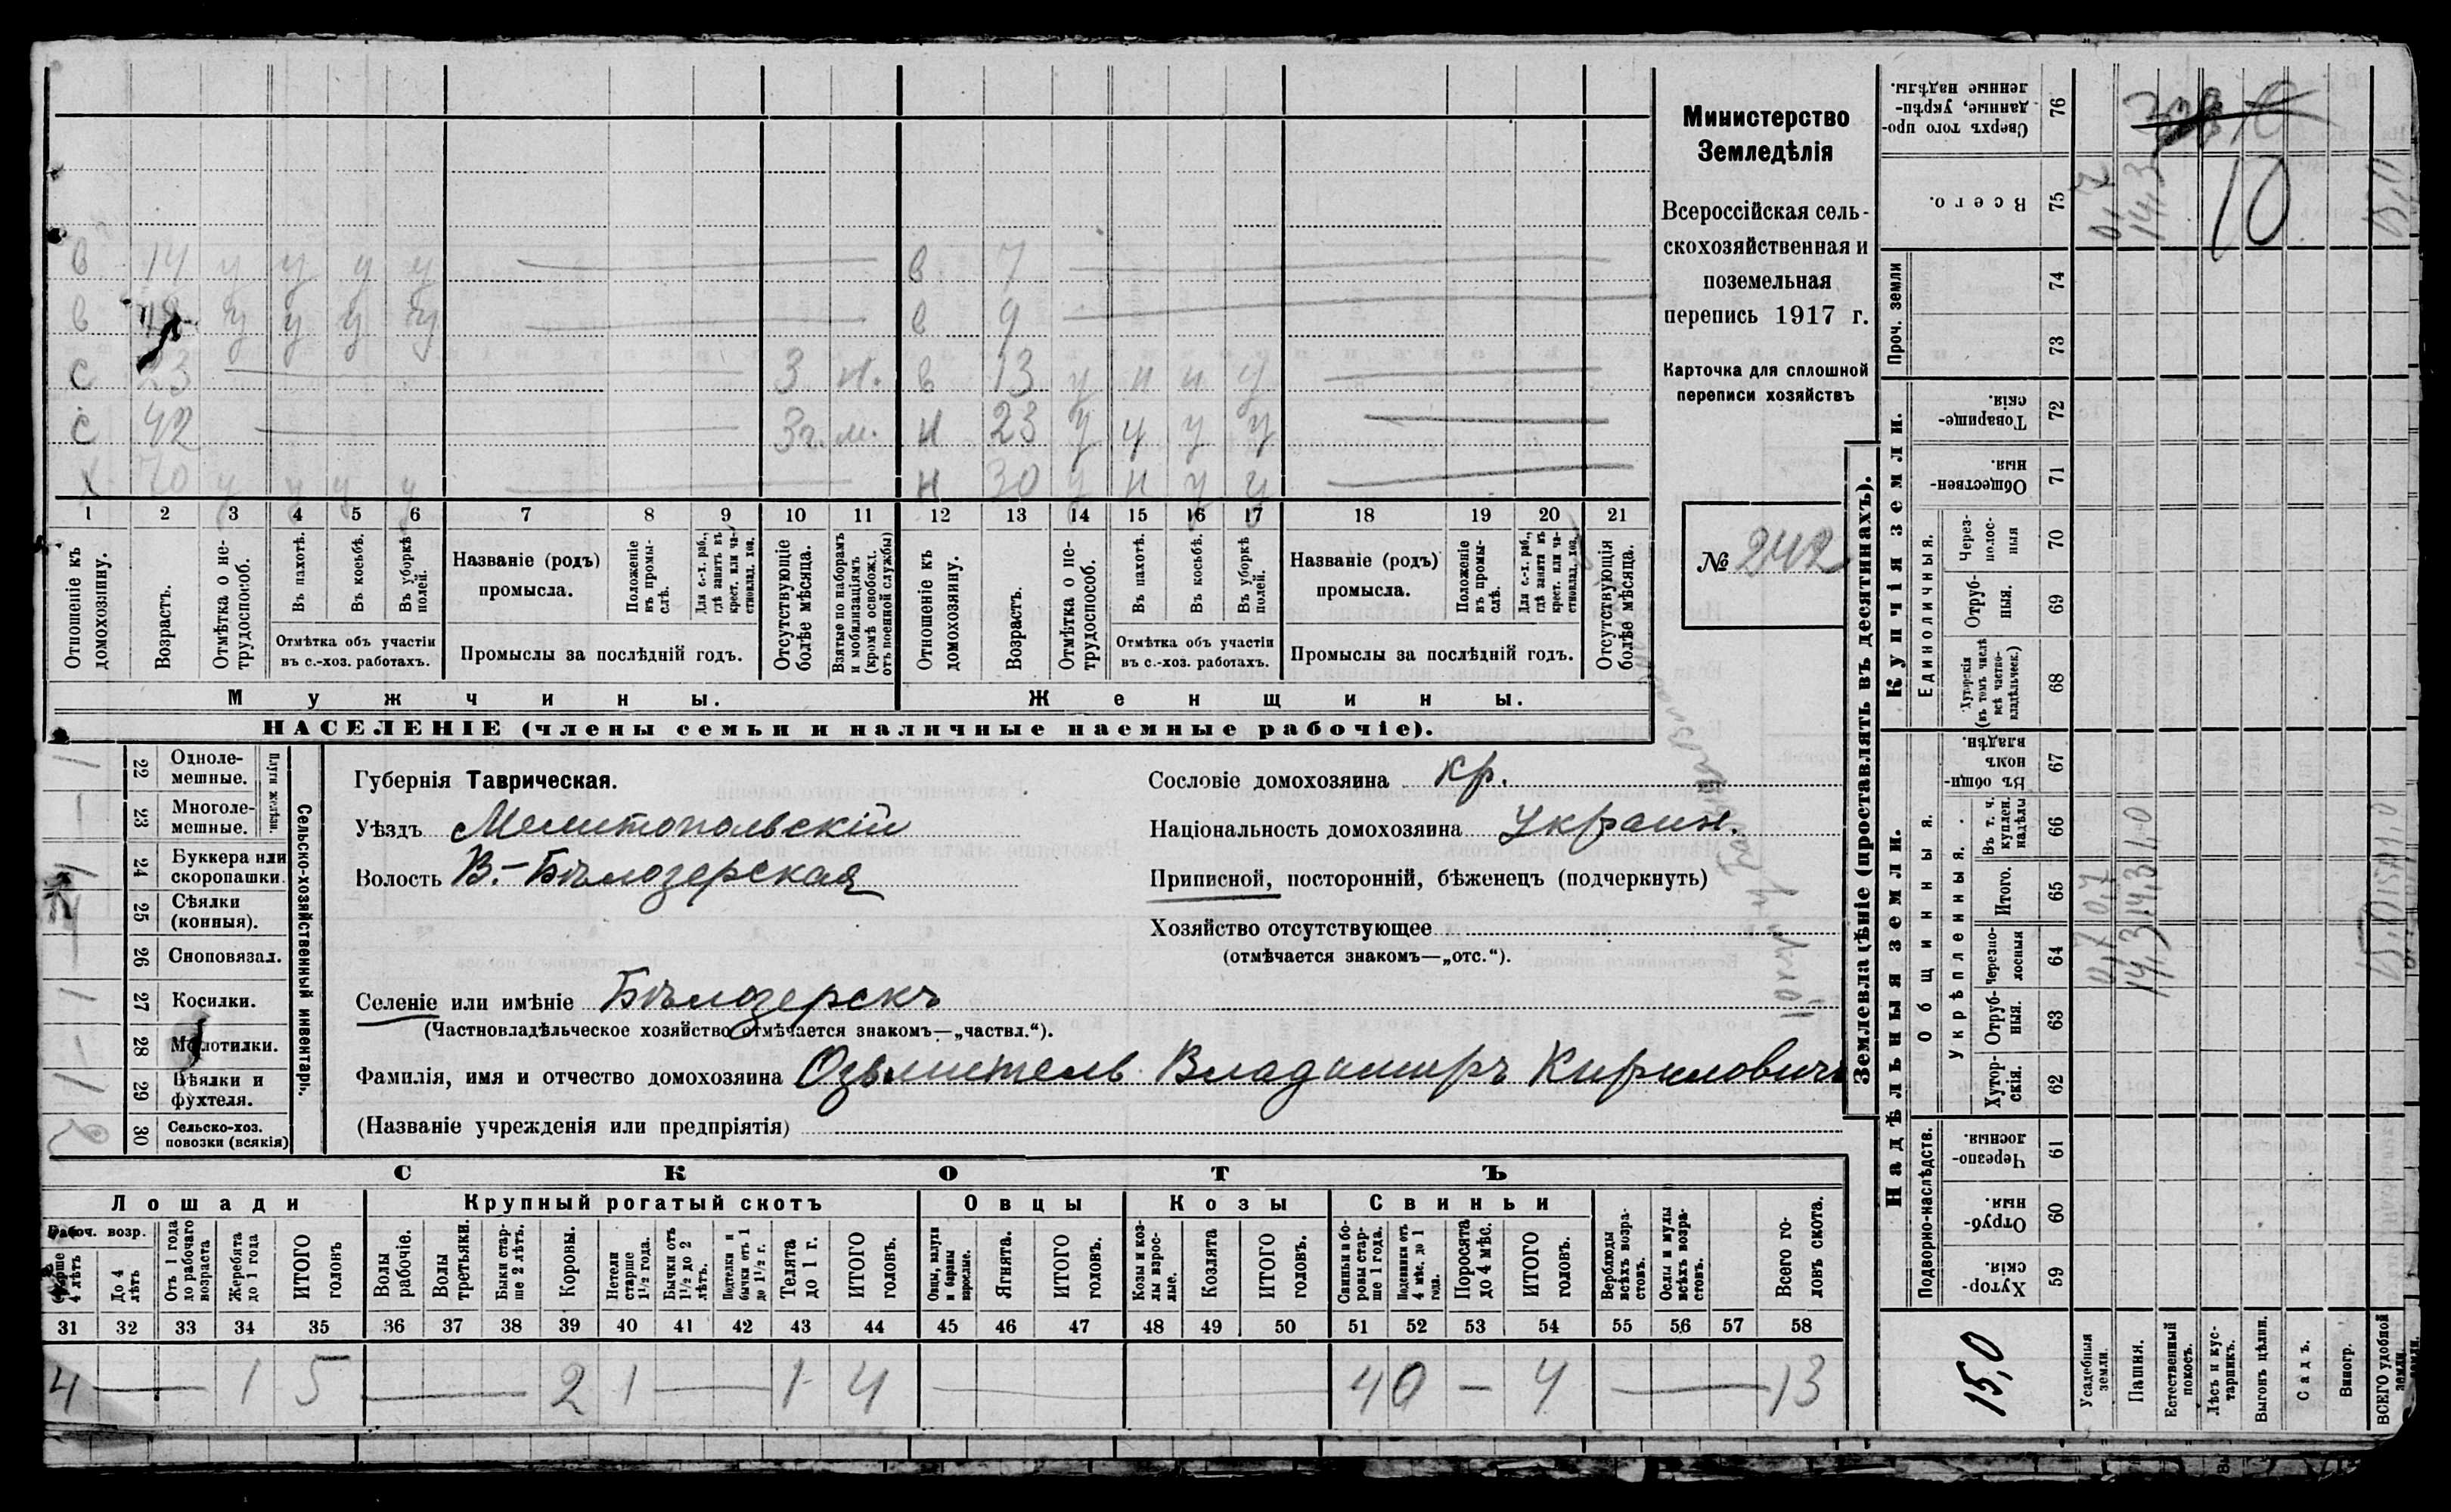 в 14 у у у у в 7
в у у у у в 9
с 23 3 м. в 13 у н н у
с 42 3 г. м. н 23 у у у у
х 70 у у у у н 30 у н у у
1 2 3 4 5 6 7 8 9 10 11 12 13 14 15 16 17 18 19 20 21
Отношеніе къ домохозяину.
Возрастъ.
Отмѣтка о не-
трудоспособ.
Въ пахотѣ.
Въ косьбѣ.
Въ уборкѣ полей.
Отмѣтка объ участіи
въ с.-хоз. работахъ.
Названіе (родъ)
промысла.
Положеніе въ промы-
слѣ.
Для с.-х. раб.,
гдѣ занятъ въ
крест. или ча-
стновлад. хоз.
Промыслы за послѣдній годъ.
Отсутствующіе
болѣе мѣсяца.
Взятые по наборамъ
и мобилизаціямъ
(кромѣ освобожд.
отъ военной службы)
Отношеніе къ
домохозяину.
Возрастъ.
Отмѣтка о не-
трудоспособ.
Въ пахотѣ.
Въ косьбѣ.
Въ уборкѣ
полей.
Отмѣтка объ участіи
въ с.-хоз. работахъ.
Названіе (родъ)
промысла.
Положеніе
въ промы-
слѣ.
Для с.-х. раб.,
гдѣ занята въ
крест. или ча-
стновлад. хоз.
Промыслы за послѣдній годъ.
Отсутствующія
болѣе мѣсяца.
Мужчины.
Женщины.
НАСЕЛЕНІЕ (члены семьи и наличные наемные рабочіе).
Министерство
Земледѣлія
Всероссійская сель-
скохозяйственная и
поземельная
перепись 1917 г.
Карточка для сплошной
переписи хозяйствъ
№ 242
22 Одноле-
мешные.
23 Многоле-
мешные.
Плуги желѣзн.
24 Буккера или
скоропашки.
25 Сѣялки
(конныя).
26 Сноповязал.
27 Косилки.
28 Молотилки.
29 Вѣялки и
фухтеля.
30 Сельско-хоз.
повозки (всякія)
Сельско-хозяйственный инвентарь.
Губернія Таврическая.
Уѣздъ Мелитопольскій
Волость В.-Бѣлозерская
Селеніе или имѣніе Бѣлозерскъ
(Частновладѣльческое хозяйство отмѣчается знакомъ—„частвл.“).
Фамилія, имя и отчество домохозяина Озвмитель Владимиръ Кириловичъ
(Названіе учрежденія или предпріятія)
Сословіе домохозяина кр.
Національность домохозяина Украин.
Приписной, посторонній, бѣженецъ (подчеркнуть)
Хозяйство отсутствующее
(отмѣчается знакомъ—„отс.“).
СКОТЪ
Лошади
Крупный рогатый скотъ
Овцы
Козы
Свиньи
Рабоч. возр.
Старше
4 лѣтъ
До 4
лѣтъ
Отъ 1 года
до рабочаго
возраста
Жеребята
до 1 года
ИТОГО
головъ
Волы
рабочіе.
Волы
третьяки.
Быки стар-
ше 2 лѣтъ.
Коровы.
Нетели
старше
1½ года.
Бычки отъ
1½ до 2
лѣтъ.
Подтелки и
бычки отъ 1
до 1½ г.
Телята
до 1 г.
ИТОГО
головъ.
Овцы, валухи
и бараны
взрослые.
Ягнята.
ИТОГО
головъ.
Козы и коз-
лы взрос-
лые.
Козлята
ИТОГО
головъ.
Свиньи и бо-
ровы стар-
ше 1 года.
Подсвинки отъ
4 мѣс. до 1
года.
Поросята
до 4 мѣс.
ИТОГО
головъ.
Верблюды
всѣхъ возра-
стовъ.
Ослы и мулы
всѣхъ возра-
стовъ.
Всего го-
ловъ скота.
31 32 33 34 35 36 37 38 39 40 41 42 43 44 45 46 47 48 49 50 51 52 53 54 55 56 57 58
4 — 1 5 — 2 1 — 1 4 — 4 0 — 4 — 13
Землевладѣніе (проставлять въ десятинахъ).
Купчія земли.
Надѣльныя земли.
Сверхъ того про-
данные, укрѣп-
ленные надѣлы.
76
Всего.
75
0,7
14,3
10
15,0
Проч. земли
74
73
Товарище-
скія.
72
Обществен-
ныя.
71
Единоличныя.
Через-
полос-
ныя
70
Отруб-
ныя.
69
Хуторскія
(въ томъ числѣ
всѣ частно-
владѣльческ.)
68
Общинныя.
Въ общин-
номъ
владѣн.
67
Укрѣпленныя.
Въ т. ч.
куплен.
надѣлы
66
1,0
1,0
Итого.
65
0,7
14,3
15,0
Черезпо-
лосныя
64
0,7
14,3
15,0
Отруб-
ныя.
63
Хутор-
скія.
62
Подворно-наслѣдств.
Черезпо-
лосныя.
61
Отруб-
ныя.
60
Хутор-
скія.
59
15,0
Усадебныя
земли.
Пашня.
Естественный
покосъ.
Лѣсъ и кус-
тарникъ.
Выгонъ цѣлин.
Садъ.
Виногр.
ВСЕГО удобной
земли.